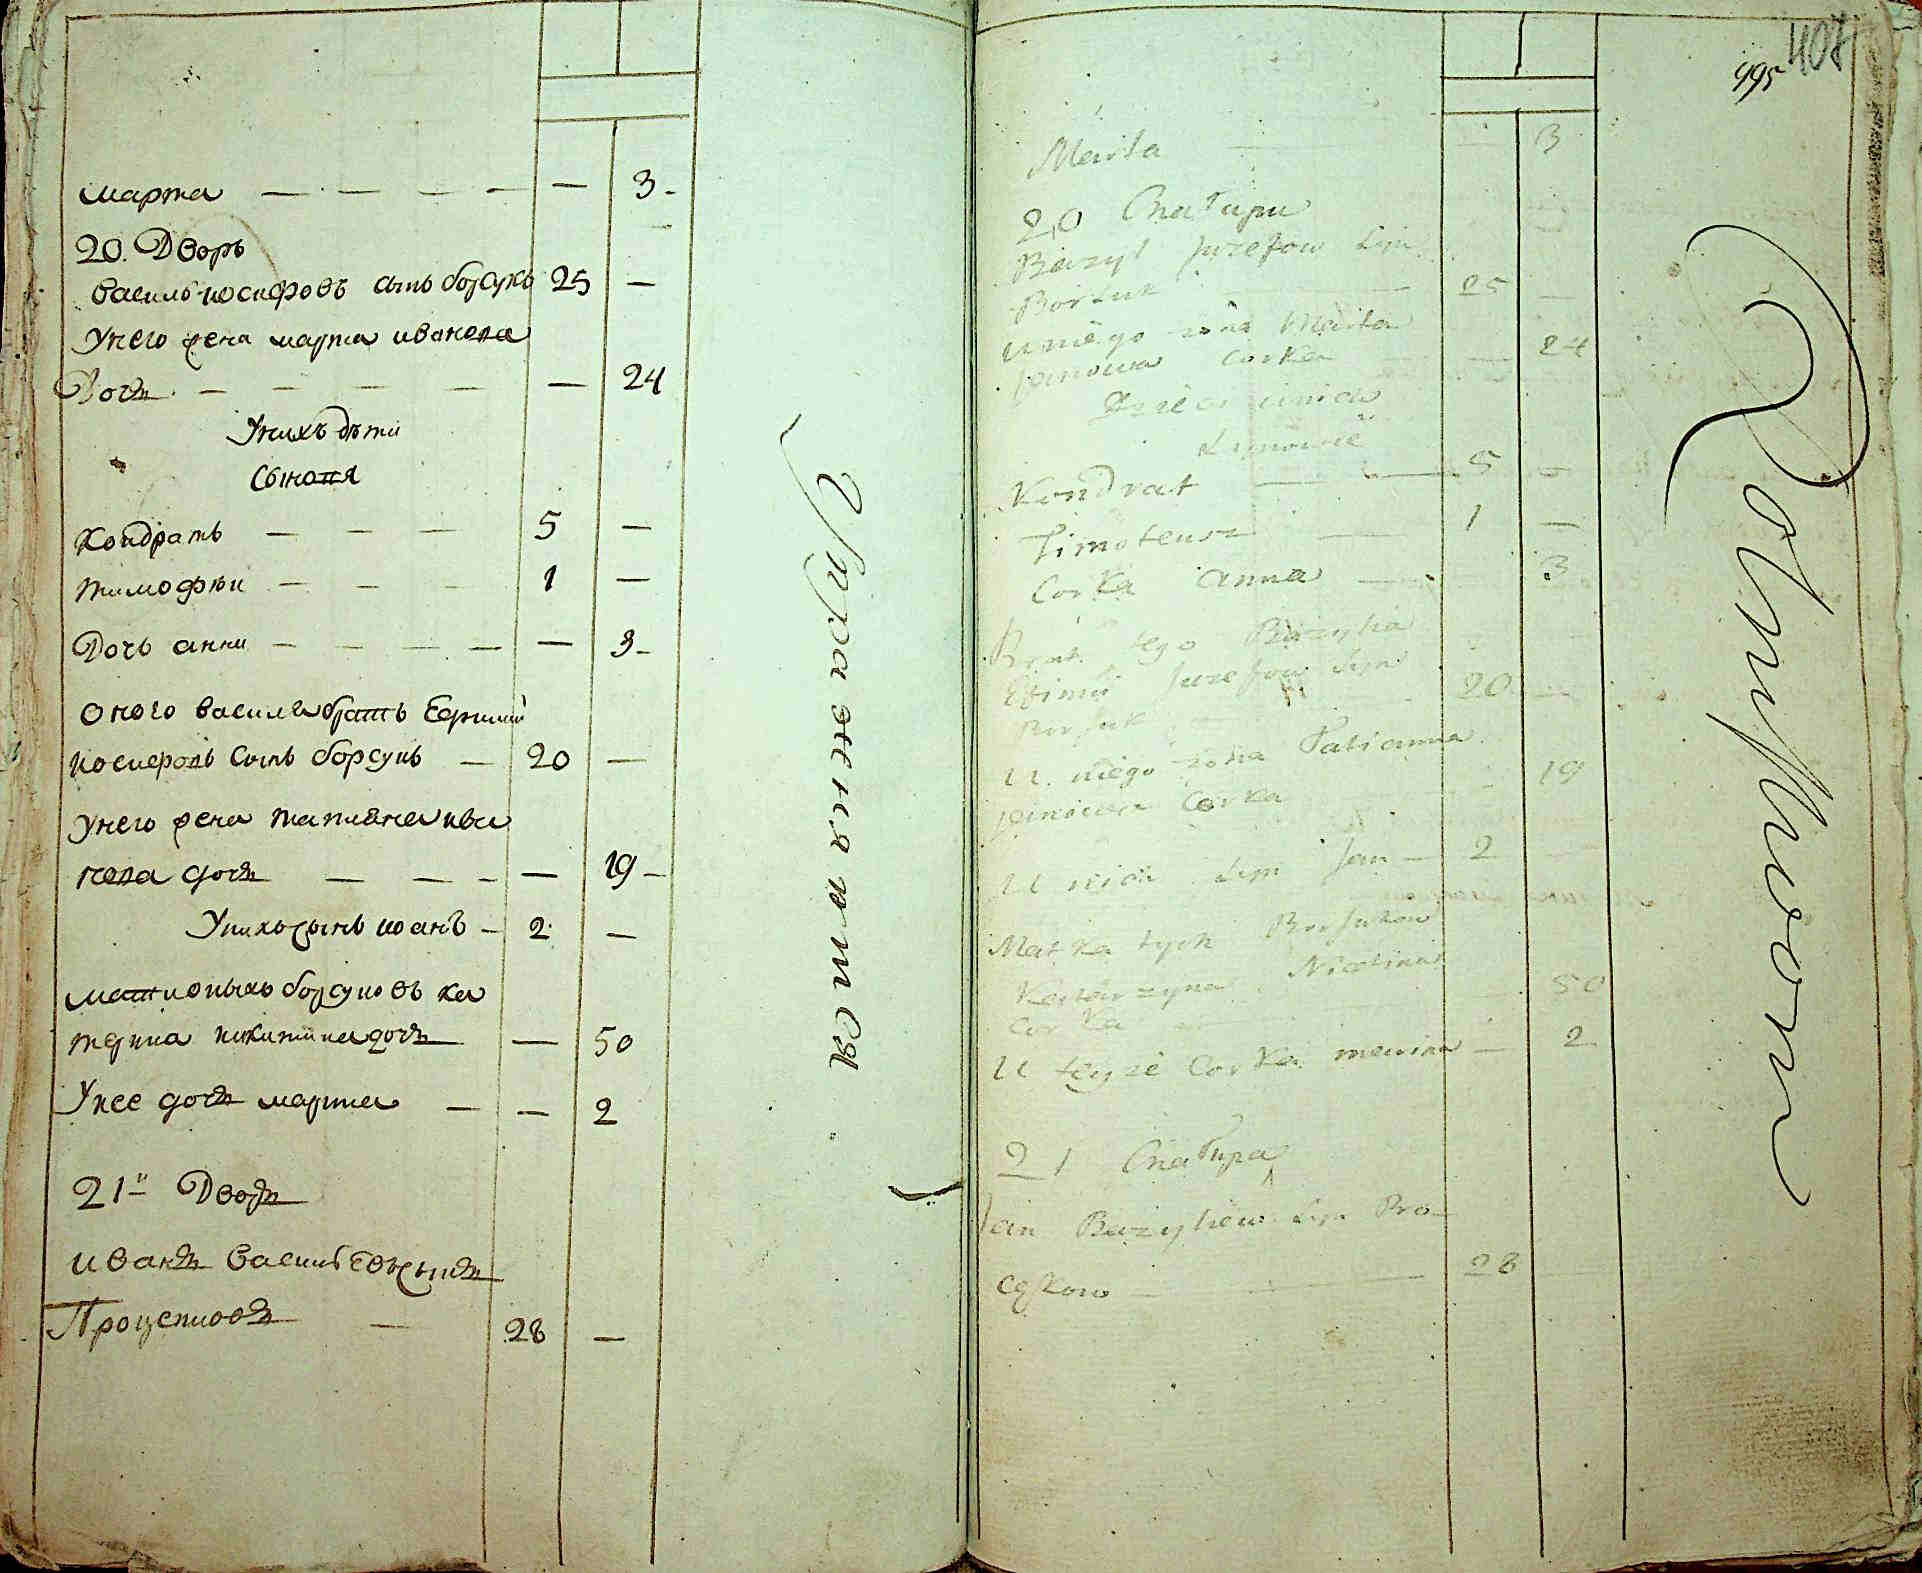 марта — — — — — 3
20. Дворъ
Василь иосифовъ сынъ борсукъ 25 —
Унего жена марта иванова
Дочъ — — — — — 24
Унихъ дѣти
Сыновя
Кондратъ — — — 5 —
тимофѣи — — — 1 —
Дочь анна — — — — — 3
оного василя братъ Ефимий
иосифовъ сынъ борсукъ — 20 —
Унего жена татияна ива
нова дочъ — — — — 19
Унихъ сынъ иоанъ — 2 —
мат оныхъ борсуковъ ка
терина никитина дочъ — 50
Унее дочъ марта — — 2
21й Дворъ
иванъ Васильевъ сынъ
Процевковъ — 28 —
407
495
Marta — — 3
20 Chatupa
Bazyl Juzefow Syn
Borsuk — 25 —
U niego zona Marta
Janowa Corka — 24
Dzieci u nich
Synowie
Kondrat — 5 —
Timoteusz — 1 —
Corka anna — 3
Brat tego Bazyla
Efimii Juzefow Syn
Borsuk — 20 —
U niego zona Tatianna
Janowa Corka — 19
U nich Syn Jan — 2
Matka tych Borsukow
Katarzyna
Corka — 50
U teyze Corka — 2
21 Chatupa
Jan Bazylew Syn Pro-
— 28